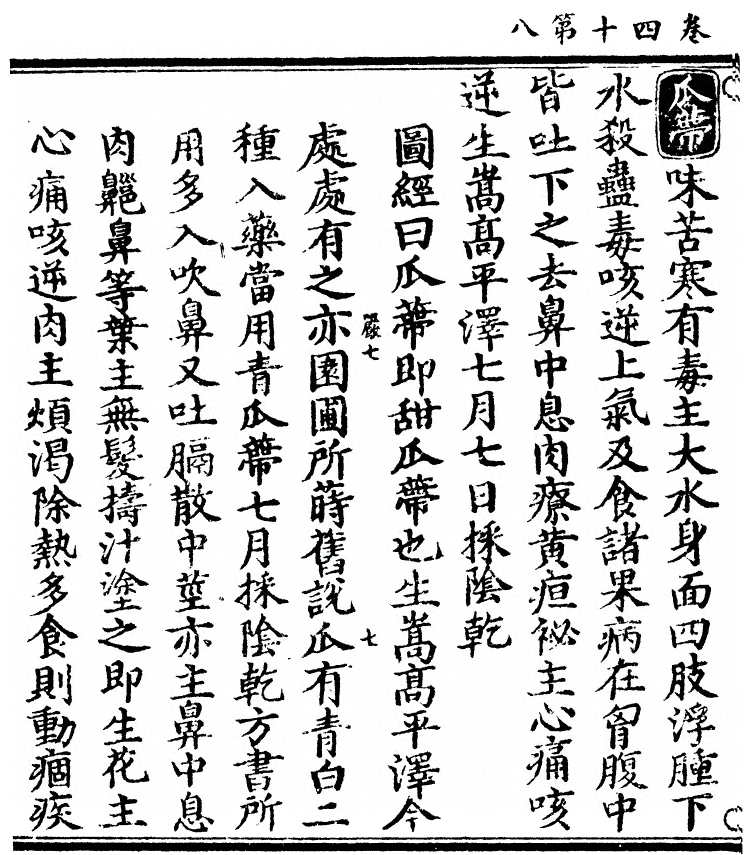 卷四十第八
瓜蒂味苦寒有毒主大水身面四肢浮腫下
水殺蠱毒咳逆上氣及食諸果病在胷腹中
皆吐下之去鼻中息肉療黃疸祕主心痛咳
逆生嵩髙平澤七月七日採陰乾
圖經曰瓜蒂即甜瓜蒂也生嵩髙平澤今
處處有之亦園圃所蒔舊說瓜有青白二
種入藥當用青瓜蒂七月採陰乾方書所
用多入吹鼻又吐膈散中莖亦主鼻中息
肉齆鼻等葉主無髮擣汁塗之即生花主
心痛咳逆肉主煩渴除熱多食則動痼疾
七
七